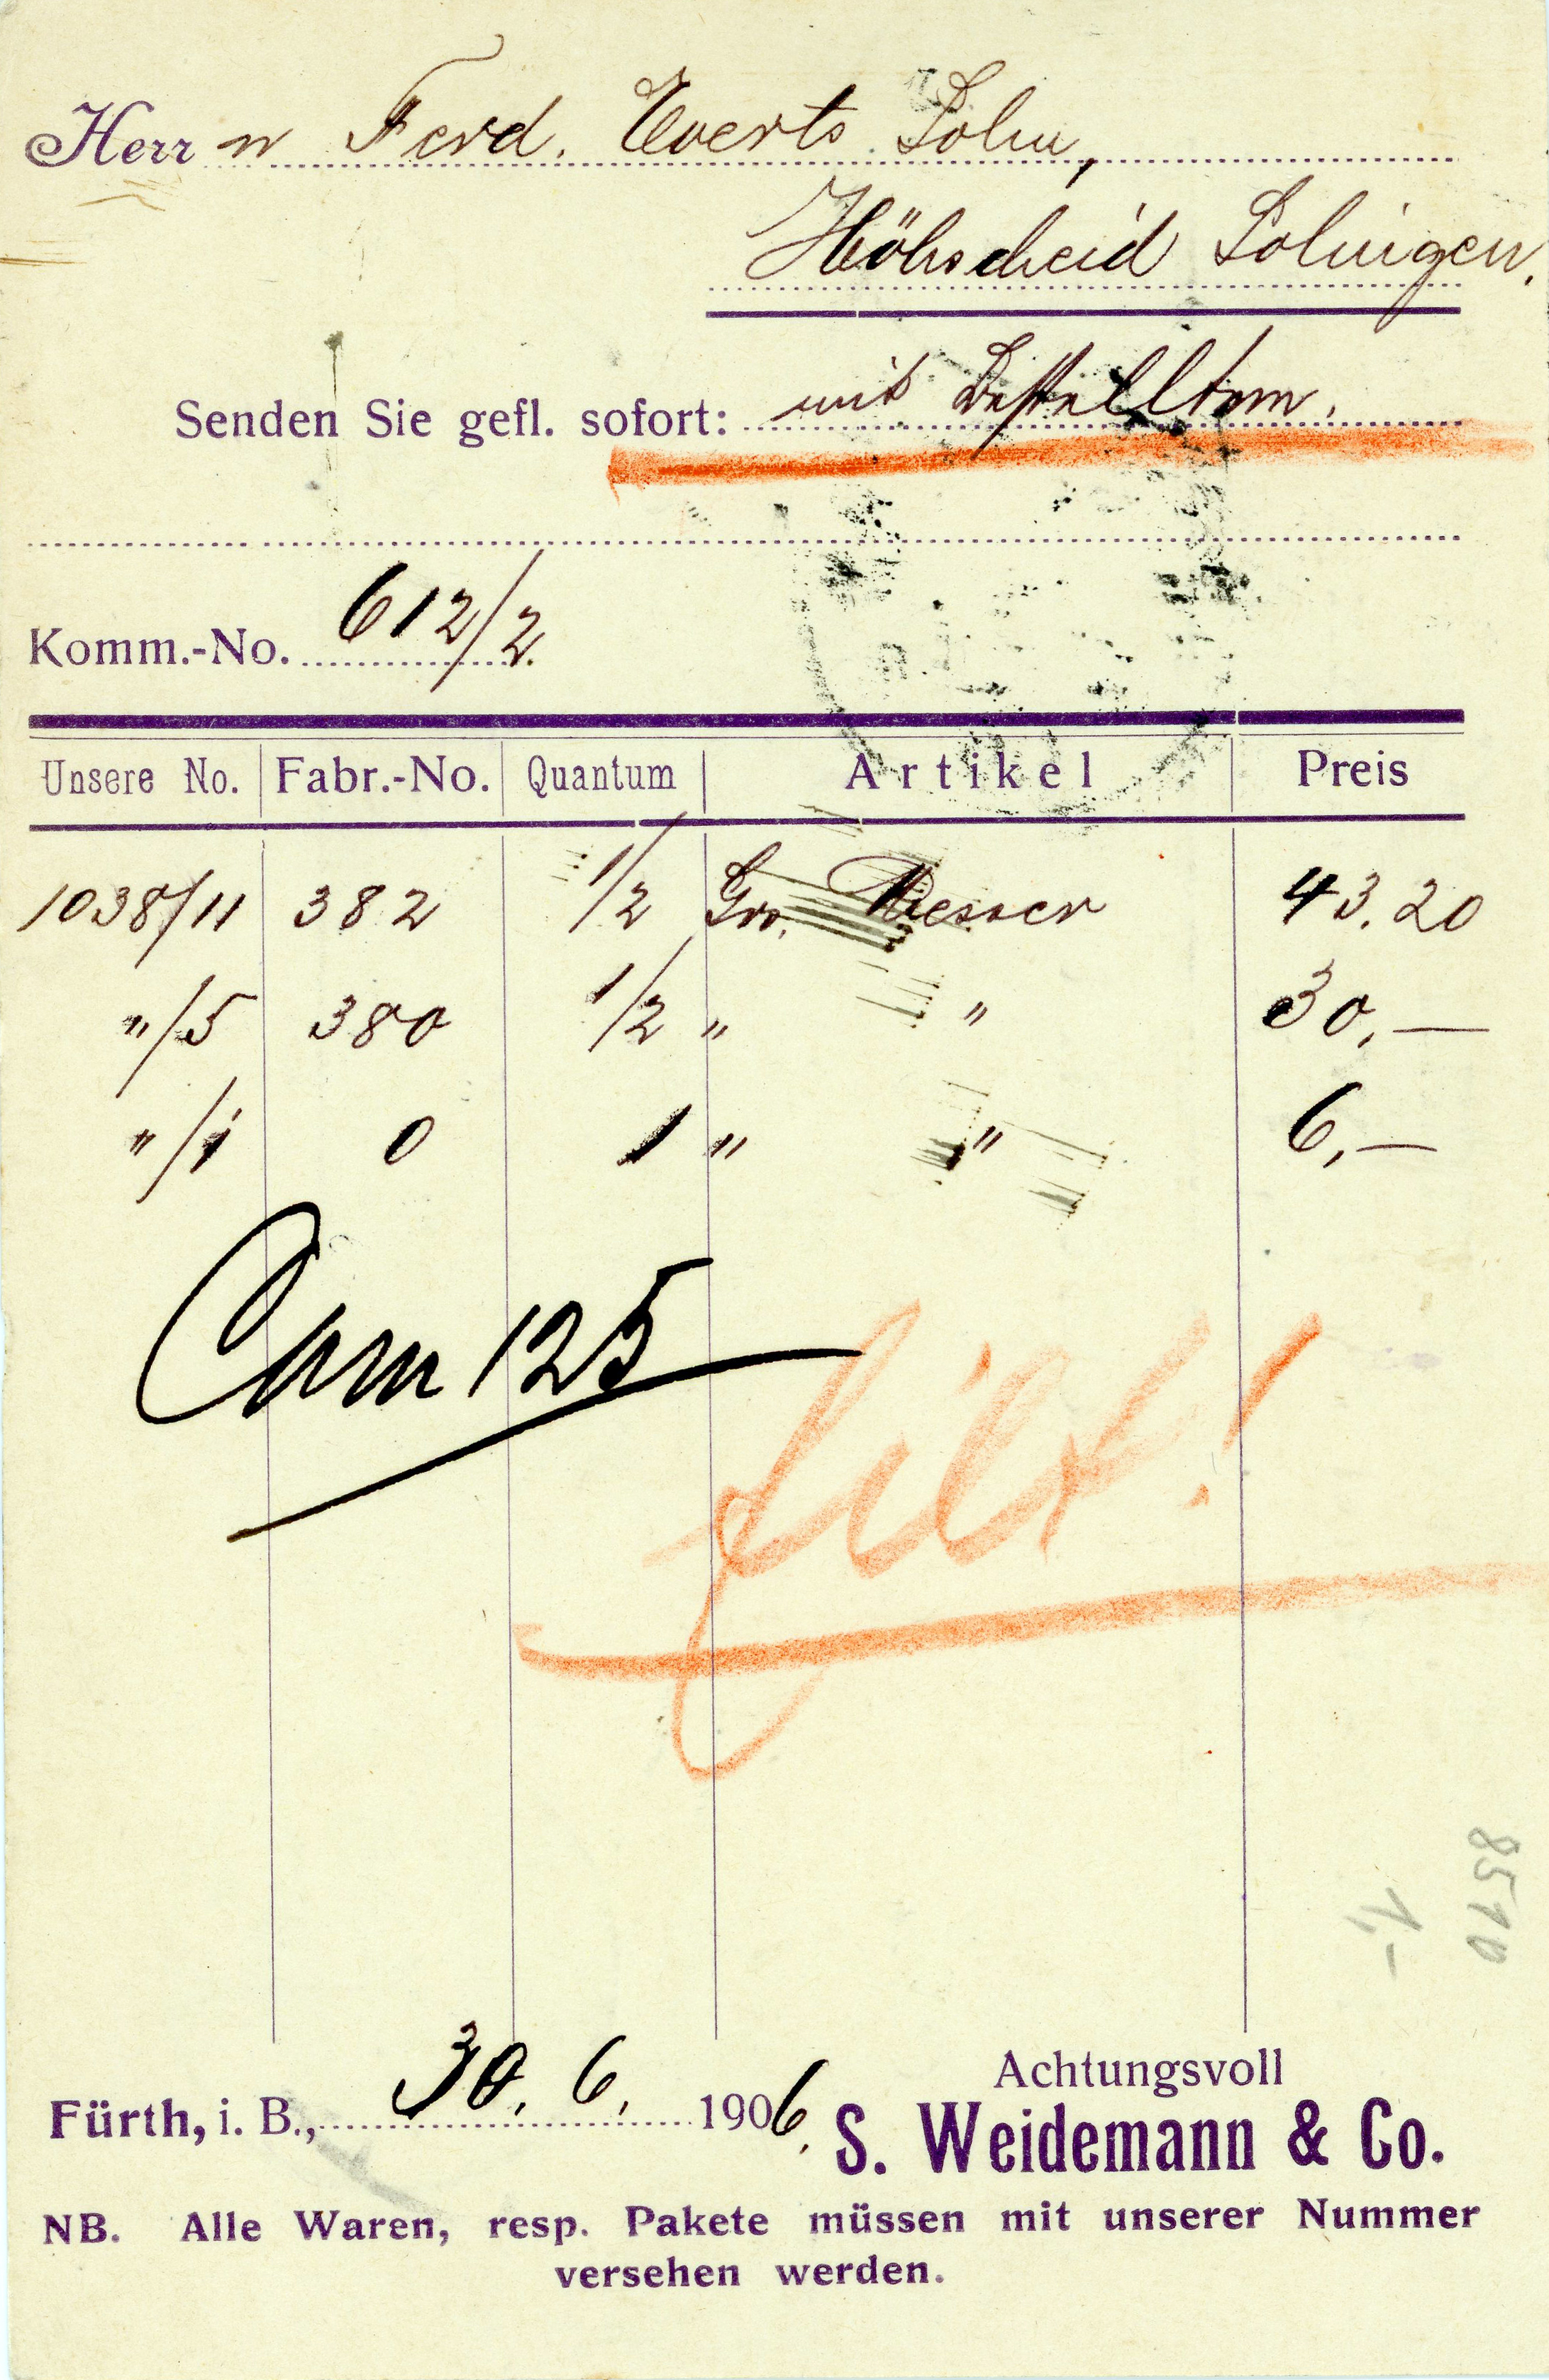 Herrn Ferd. Everts Sohn,
Höhscheid Solingen.
Senden Sie gefl. sofort: mit Bestelltem.
Komm.-No. 612/2.
Unsere No. Fabr.-No. Quantum Artikel Preis
1038/11 382 1/2 Gro. Messer 43.20
"/5 380 1/2 " " 30,—
"/1 0 1 " " 6,—
125
Eilt!
8510
1,-
Fürth, i. B., 30. 6. 1906.
Achtungsvoll
S. Weidemann & Co.
NB. Alle Waren, resp. Pakete müssen mit unserer Nummer
versehen werden.